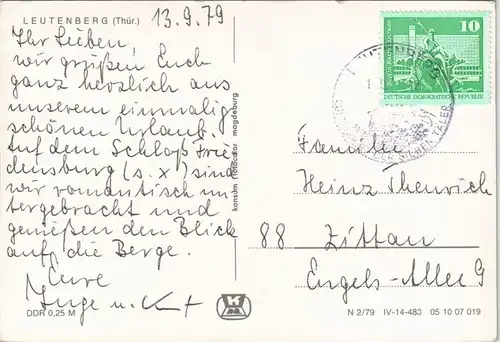 LEUTENBERG (Thür.)
13.9.79
Ihr Lieben,
wir grüßen Euch
ganz herzlich aus
unserem einmalig
schönen Urlaub.
Auf dem Schloß Frie
densburg (s. x) sind
wir romantisch un
tergebracht und
genießen den Blick
auf die Berge.
Eure
Inge u. Kurt
DDR 0,25 M
konsum fotocolor magdeburg
KM
10
DEUTSCHE DEMOKRATISCHE REPUBLIK
LEUTENBERG
DER SIEBEN TÄLER
Familie
Heinz
88 Zittau
Engels-Allee 9
N 2/79 IV-14-483 05 10 07 019